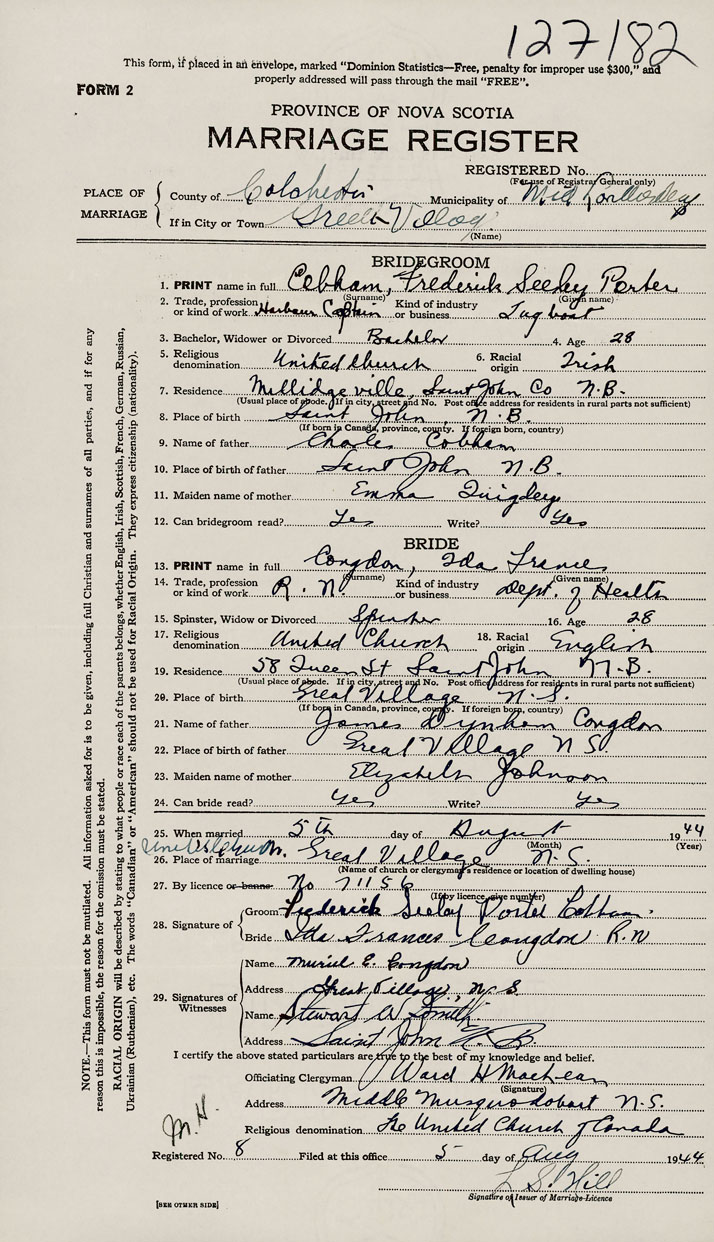 127182
This form, if placed in an envelope, marked "Dominion Statistics—Free, penalty for improper use $300," and
properly addressed will pass through the mail "FREE".
FORM 2
PROVINCE OF NOVA SCOTIA
MARRIAGE REGISTER
REGISTERED No.
(For use of Registrar General only)
PLACE OF MARRIAGE
County of Colchester Municipality of
If in City or Town Great Village
(Name)
BRIDEGROOM
1. PRINT name in full Cobham, Frederick Seeley Porter
(Surname) (Given name)
2. Trade, profession or kind of work Harbour Captain Kind of industry or business Tug boat
3. Bachelor, Widower or Divorced Bachelor 4. Age 28
5. Religious denomination United Church 6. Racial origin Irish
7. Residence Millidgeville, Saint John Co N.B.
(Usual place of abode. If in city, street and No. Post office address for residents in rural parts not sufficient)
8. Place of birth Saint John, N.B.
(If born in Canada, province, county. If foreign born, country)
9. Name of father Charles Cobham
10. Place of birth of father Saint John N.B.
11. Maiden name of mother Emma Quigley
12. Can bridegroom read? Yes Write? Yes
BRIDE
13. PRINT name in full Congdon, Ida Frances
(Surname) (Given name)
14. Trade, profession or kind of work R.N. Kind of industry or business Dept. of Health
15. Spinster, Widow or Divorced Spinster 16. Age 28
17. Religious denomination United Church 18. Racial origin English
19. Residence 58 Queen St Saint John N.B.
(Usual place of abode. If in city, street and No. Post office address for residents in rural parts not sufficient)
20. Place of birth Great Village N.S.
(If born in Canada, province, county. If foreign born, country)
21. Name of father James Congdon
22. Place of birth of father Great Village N.S.
23. Maiden name of mother Elizabeth Johnson
24. Can bride read? Yes Write? Yes
25. When married 5th day of August 1944
(Month) (Year)
United Church.
26. Place of marriage Great Village N.S.
(Name of church or clergyman's residence or location of dwelling house)
27. By licence or banns No 71156
(If by licence, give number)
28. Signature of
Groom Frederick Seeley Porter Cobham.
Bride Ida Frances Congdon R.N
29. Signatures of Witnesses
Name Muriel E. Congdon
Address Great Village, N.S.
Name Stewart W Smith
Address Saint John N.B.
I certify the above stated particulars are true to the best of my knowledge and belief.
Officiating Clergyman Ward H Maclean
(Signature)
Address Middle Musquodoboit N.S.
M.H.
Religious denomination The United Church of Canada
Registered No. 8 Filed at this office 5 day of Aug 1944
L S. Hill
Signature of Issuer of Marriage Licence
[SEE OTHER SIDE]
NOTE.—This form must not be mutilated. All information asked for is to be given, including full Christian and surnames of all parties, and if for any
reason this is impossible, the reason for the omission must be stated.
RACIAL ORIGIN will be described by stating to what people or race each of the parents belongs, whether English, Irish, Scottish, French, German, Russian,
Ukrainian (Ruthenian), etc. The words "Canadian" or "American" should not be used for Racial Origin. They express citizenship (nationality).